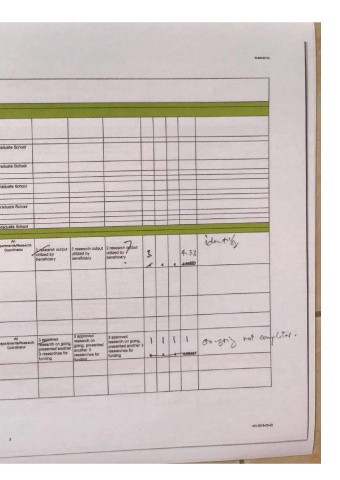 raduate School
raduate School
raduate School
raduate School
raduate School
All
partments/Research
Coordinator
research output
utilized by
beneficiary
2 research output
utilized by
beneficiary
2 research output
utilized by
beneficiary
?
5
4.33
identify
All
partments/Research
Coordinator
3 approved
research on going,
presented another
3 researches for
funding
3 approved
research on
going, presented
another 3
researches for
funding
3 approved
research on going,
presented another 3
researches for
funding
1 1 1 1
on-going not completed.